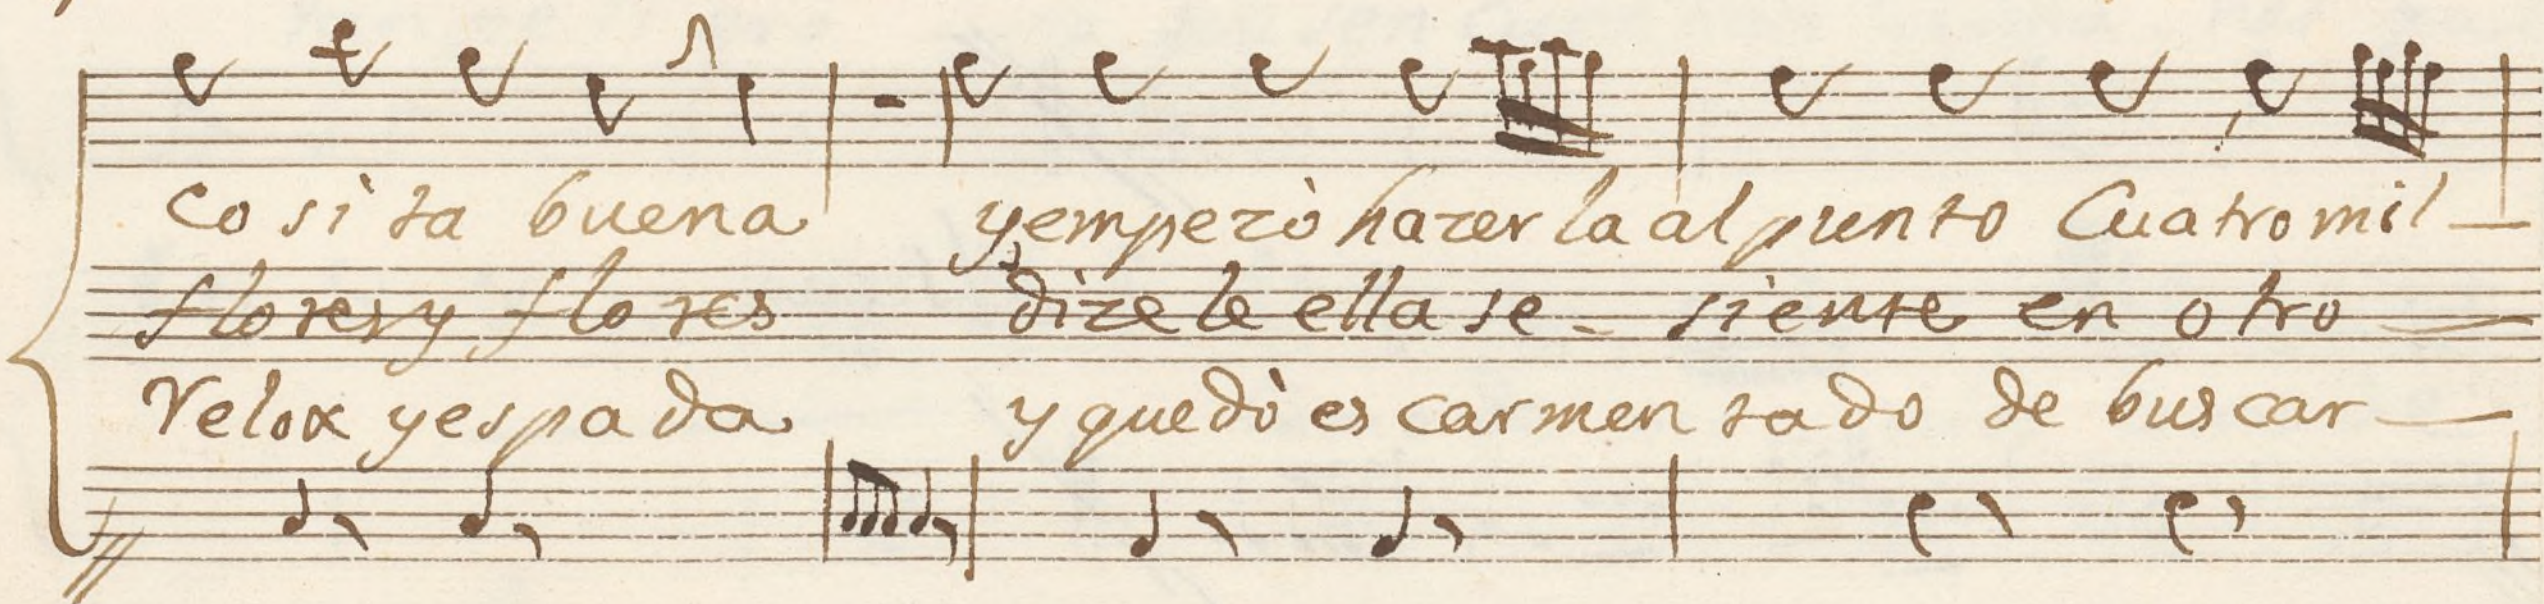 Cosita buena yempezò hazerla al punto Cuatro mil
flores y flores dizele ella se-siente en otro
Velox yespada y quedò escarmentado de buscar